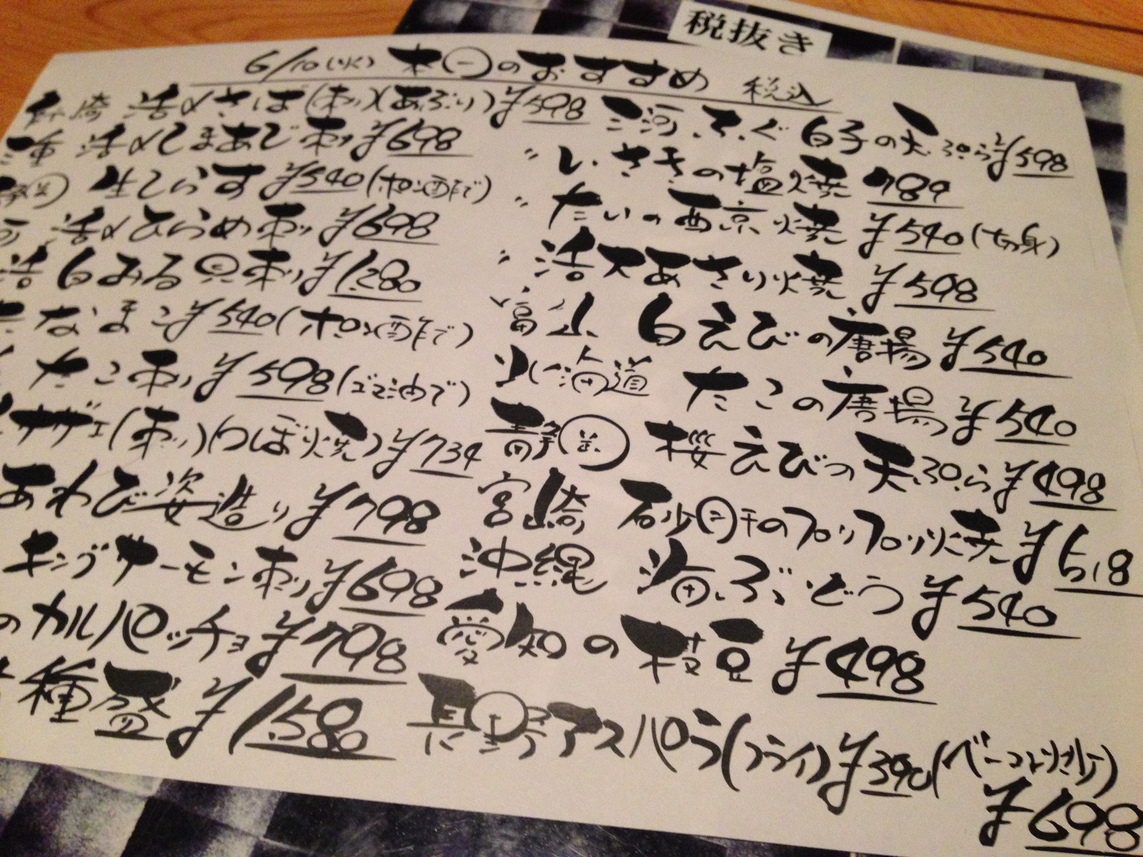 税抜き
6/10(火) 本日のおすすめ 税込
活〆さば(刺)(あぶり)¥598
活〆しまあじ刺 ¥698
生しらす ¥540(ポン酢で)
活〆ひらめ刺 ¥698
活白みる貝刺 ¥1,280
なまこ ¥540(ポン酢で)
たこ刺 ¥598(ゴマ油で)
サザエ(刺)(つぼ焼)¥734
あわび姿造り ¥798
キングサーモン刺 ¥698
のカルパッチョ ¥798
種盛 ¥1,580
三河 ふぐ白子の天ぷら ¥598
〃 いさきの塩焼 789
〃 たいの西京焼 ¥540(切身)
〃 活大あさり焼 ¥598
富山 白えびの唐揚 ¥540
北海道 たこの唐揚 ¥540
静岡 桜えびの天ぷら ¥498
宮崎 砂肝のプリプリ焼 ¥518
沖縄 海ぶどう ¥540
愛知の枝豆 ¥498
長野アスパラ(フライ)¥390(ベーコン炒)
¥698